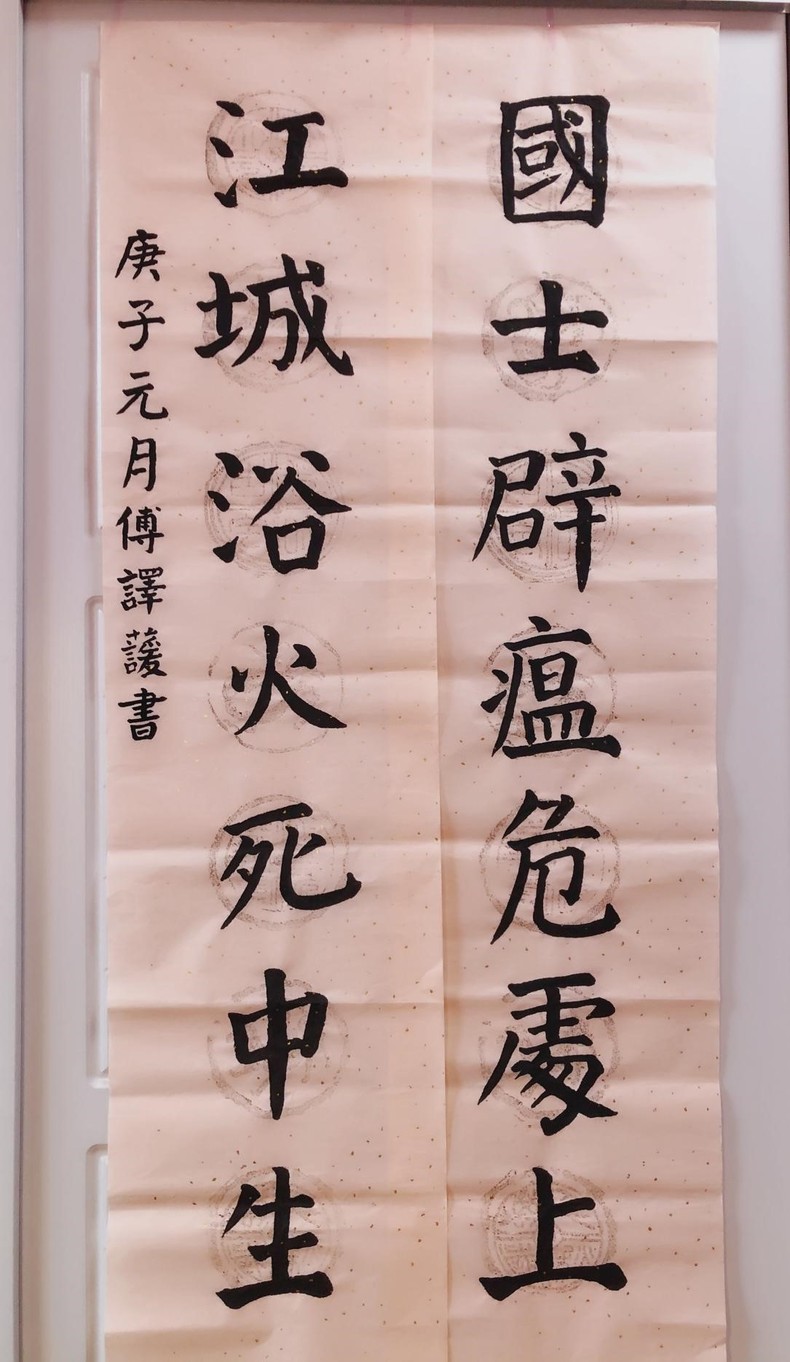 國士辟瘟危處上
江城浴火死中生
庚子元月傅譯薐書